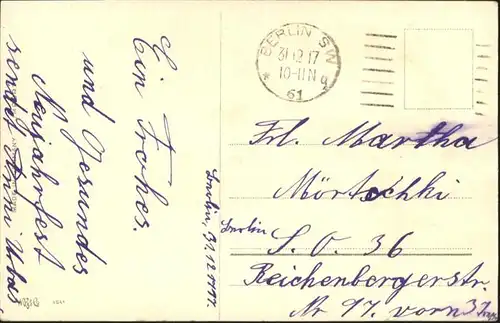 Ein Frohes
und Gesundes
Neujahrsfest
sendet Anni
Berlin, 31.12.1917.
BERLIN SW
31.12.17
10-11 N
* 61 q
Frl. Martha
Berlin
S. O. 36
Reichenbergerstr.
Nr 97. vorn 3